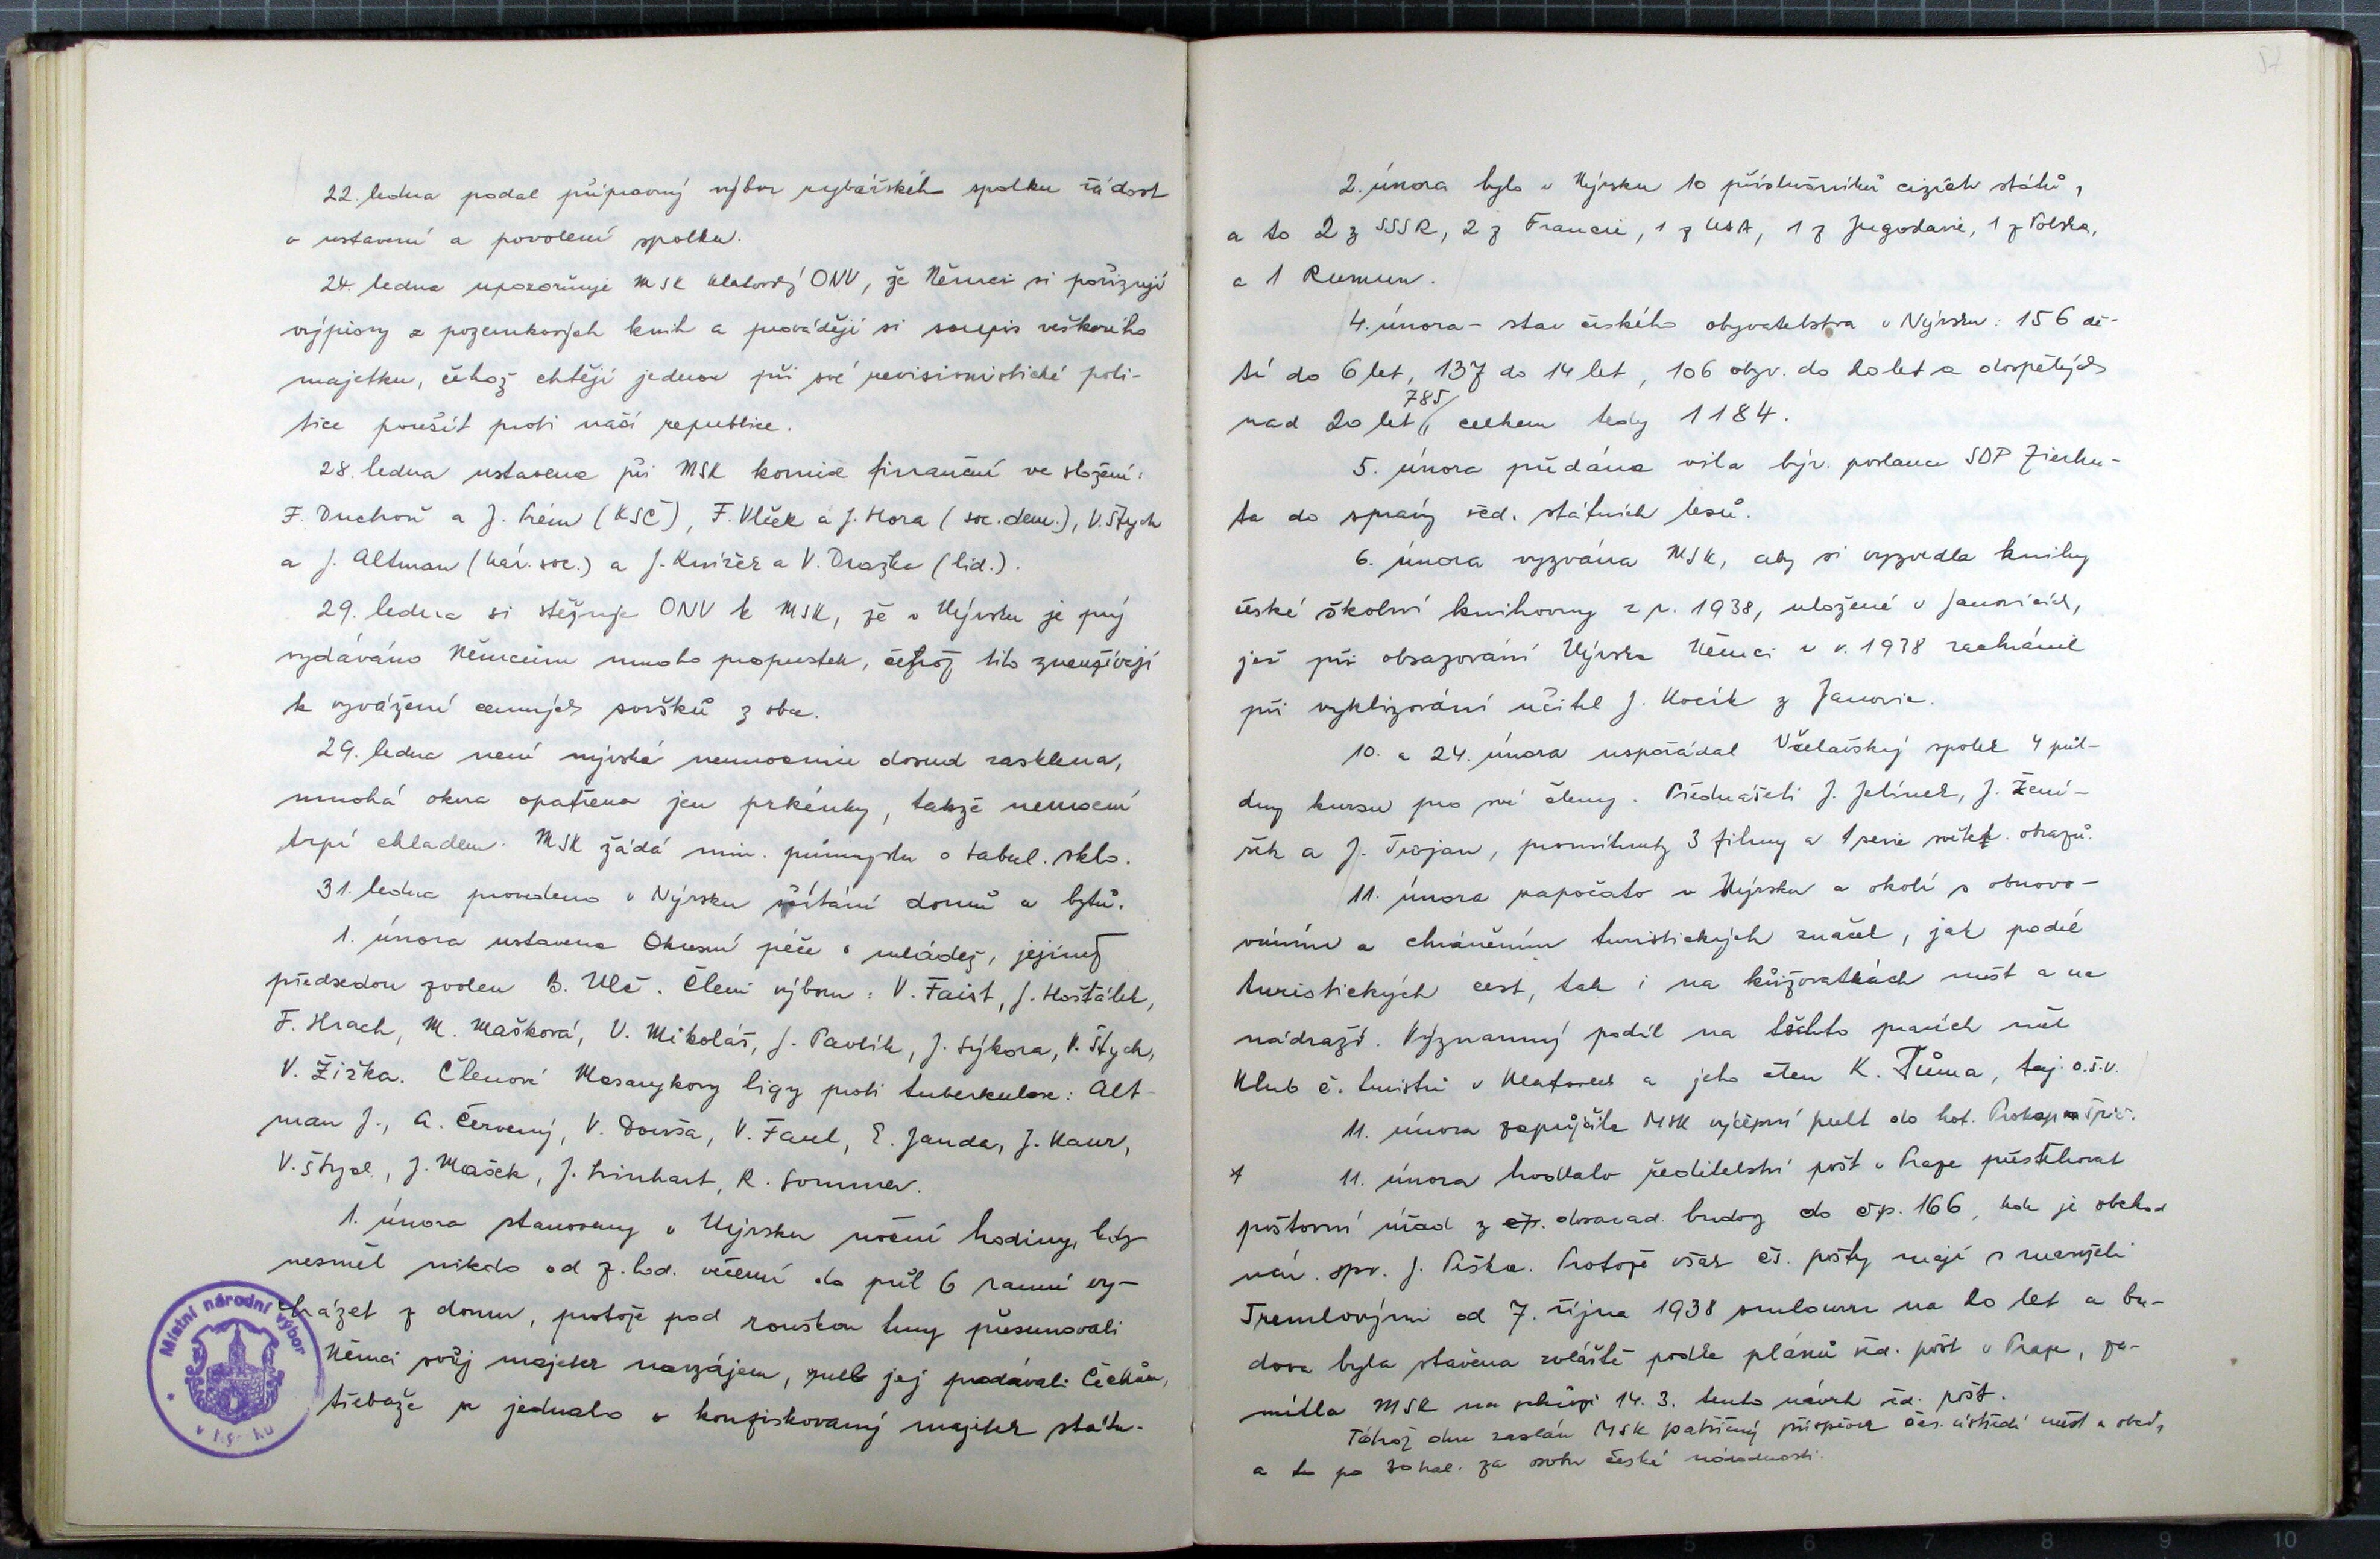 22. ledna podal přípravný výbor rybářského spolku žádost
o ustavení a povolení spolku.
24. ledna upozorňuje MSK klatovský ONV, že Němci si pořizují
výpisy z pozemkových knih a provádějí si soupis veškerého
majetku, čehož chtějí jednou při své revisionistické poli-
tice použít proti naší republice.
28. ledna ustavena při MSK komise finanční ve složení:
F. Duchoň a J. (KSČ), F. Vlček a J. Hora (soc. dem.), V. Štych
a J. Altman (nár. soc.) a J. Knížek a V. Drozka (lid.).
29. ledna si stěžuje ONV k MSK, že v Nýrsku je prý
vydáváno Němcům mnoho propustek, čehož tito zneužívají
k vyvážení cenných svršků z obce.
29. ledna není nýrská nemocnice dosud zasklena,
mnohá okna opatřena jen prkénky, takže nemocní
trpí chladem. MSK žádá min. průmyslu o tabul. sklo.
31. ledna provedeno v Nýrsku sčítání domů a bytů.
1. února ustavena Okresní péče o mládež, jejímž
předsedou zvolen B. Vlč. Členi výboru: V. Faist, J. Hošťálek,
F. Hrach, M. Mašková, V. Mikoláš, J. Pavlík, J. Sýkora, V. Štych,
V. Žižka. Členové Masarykovy ligy proti tuberkulose: Alt-
man J., A. Červený, V. Douša, V. Faul, E. Janda, J. Kaur,
V. J. Mašek, J. Linhart, R. Sommer.
1. února stanoveny v Nýrsku noční hodiny, kdy
nesměl nikdo od 7. hod. večerní do půl 6 ranní vy-
cházet z domu, protože pod rouškou tmy přesunovali
Němci svůj majetek navzájem, neb jej prodávali Čechům,
třebaže se jednalo o konfiskovaný majetek státu.
Místní národní výbor
v Nýrsku
57
2. února bylo v Nýrsku 10 příslušníků cizích států,
a to 2 z SSSR, 2 z Francie, 1 z USA, 1 z Jugoslavie, 1 z Polska,
a 1 Rumun.
4. února - stav českého obyvatelstva v Nýrsku: 156 dě-
tí do 6 let, 137 do 14 let, 106 obyv. do 20 let a dospělých
785
nad 20 let, celkem tedy 1184.
5. února přidána vila býv. poslance SDP Zierhu-
ta do správy řed. státních lesů.
6. února vyzvána MSK, aby si vyzvedla knihy
české školní knihovny z r. 1938, uložené v Janovicích,
jež při obsazování Nýrska Němci v r. 1938 zachránil
při vyklizování učitel J. Kocík z Janovic.
10. a 24. února uspořádal Včelařský spolek 4 půl-
dny kursu pro své členy. Přednášeli J. Jelínek, J. Žení-
šek a J. Trojan, promítnuty 3 filmy a 1 serie světel. obrazů.
11. února započato v Nýrsku a okolí s obnovo-
váním a chráněním turistických značek, jak podél
turistických cest, tak i na křižovatkách měst a na
nádraží. Významný podíl na těchto pracích měl
Klub č. turistů v Klatovech a jeho člen K. Tůma, taj. o.š.v.
11. února zapůjčila MSK výčepní pult do hot. Prokopa Špič.
11. února hodlalo ředitelství pošt v Praze přestěhovat
poštovní úřad z dosavad. budovy do čp. 166, kde je obchod
nár. spr. J. Piška. Protože však čs. pošty mají s manželi
Tremlovými od 7. října 1938 smlouvu na 20 let a bu-
dova byla stavěna zvláště podle plánů řed. pošt v Praze, za-
mítla MSK na schůzi 14. 3. tento návrh řed. pošt.
Téhož dne zaslán MSK patřičný příspěvek čes. ústředí měst a obcí,
a to po 30 hal. za osobu české národnosti.